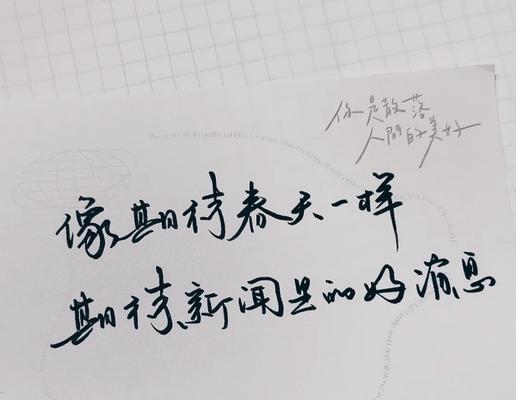 你是散落
人間的美好
像期待春天一样
期待新闻里的好消息